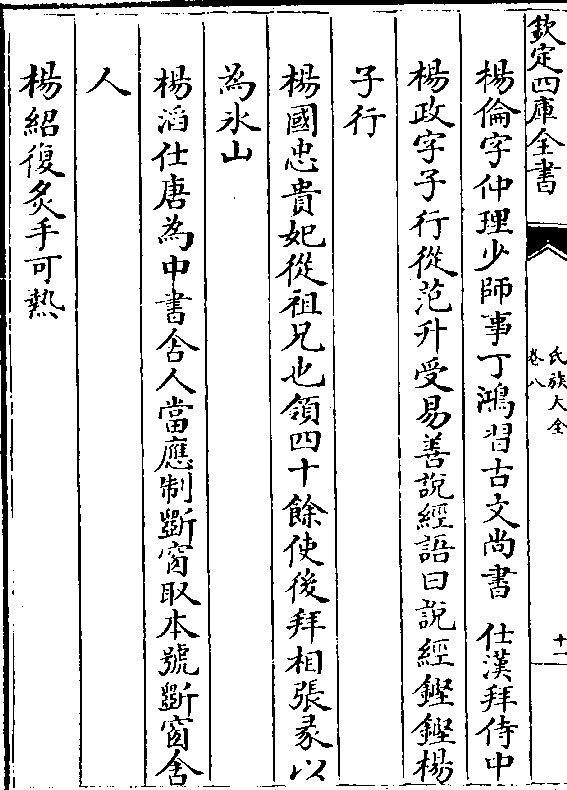 欽定四庫全書
氏族大全
卷八
十一
楊倫字仲理少師事丁鴻習古文尚書 仕漢拜侍中
楊政字子行從范升受易善說經語曰說經鏗鏗楊
子行
楊國忠貴妃從祖兄也領四十餘使後拜相張彖以
為氷山
楊滔仕唐為中書舍人當應制斵窗取本號斵窗舎
人
楊紹復炙手可熱